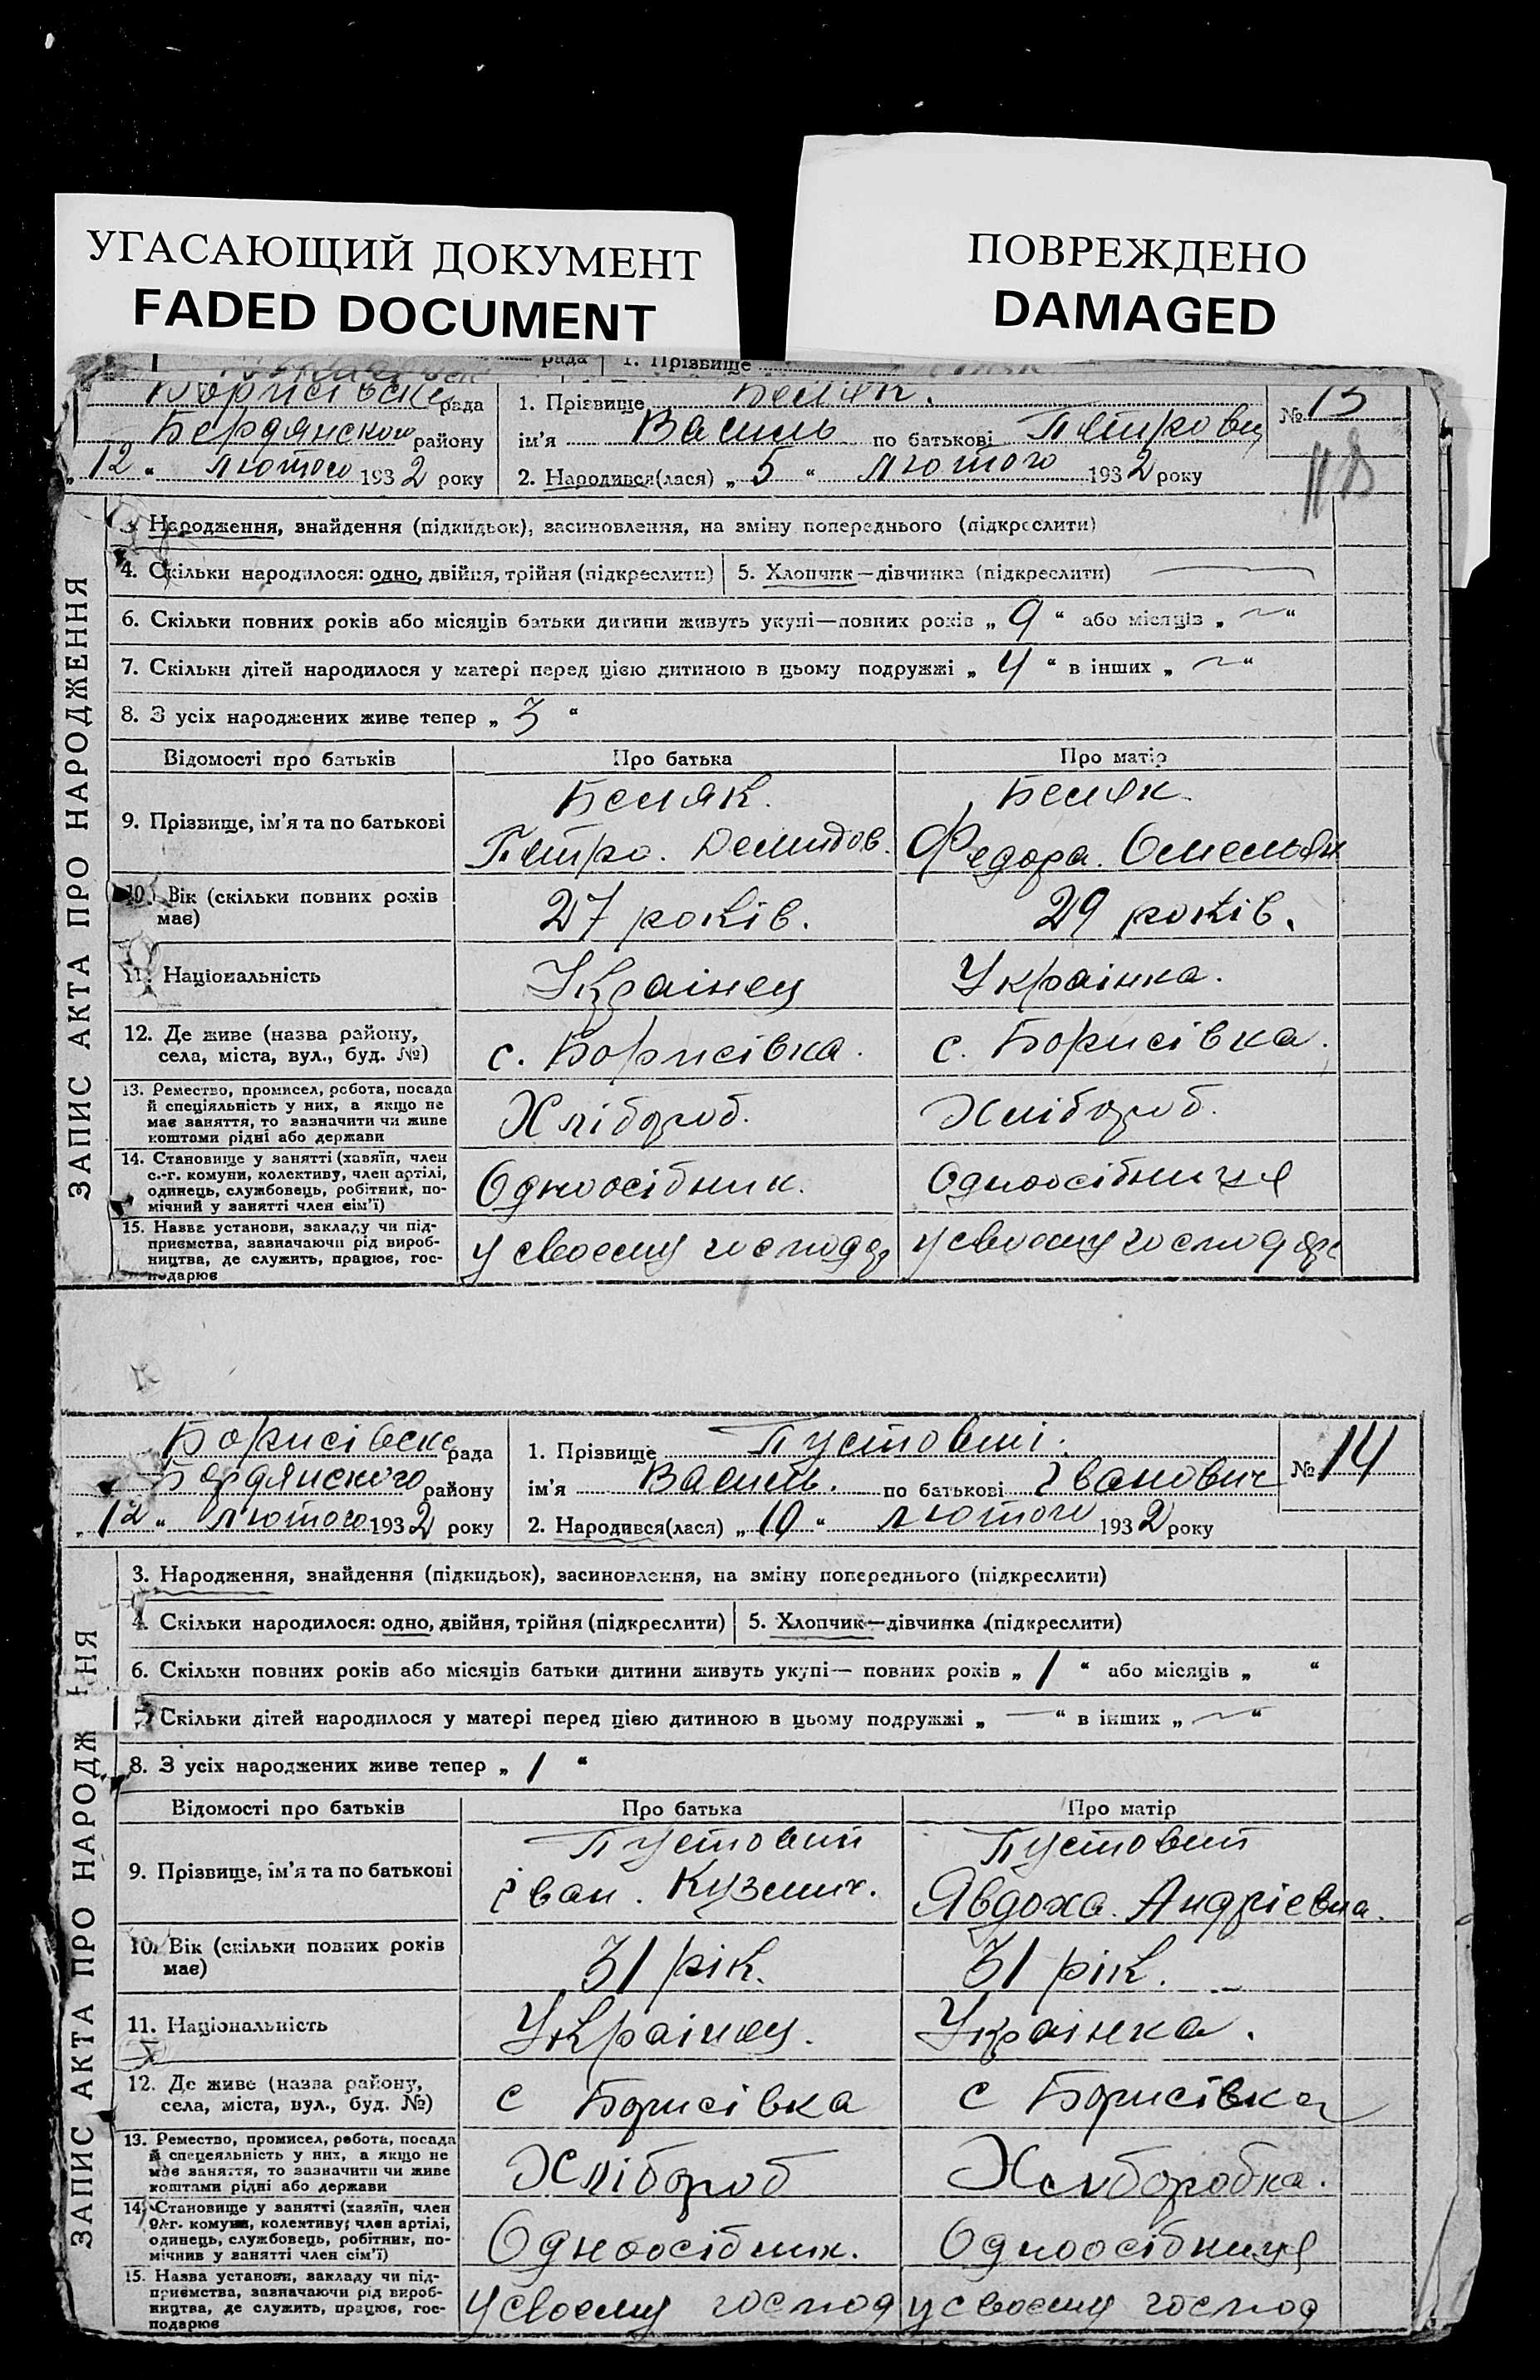 УГАСАЮЩИЙ ДОКУМЕНТ
FADED DOCUMENT
ПОВРЕЖДЕНО
DAMAGED
рада 1. Прізвище
Борисівськ рада 1. Прізвище Беляк. № 13
Бердянского району ім'я Василь по батькові Петрович
„12“ лютого 1932 року 2. Народився(лася) „5“ лютого 1932 року
ЗАПИС АКТА ПРО НАРОДЖЕННЯ
3. Народження, знайдення (підкидьок), засиновлення, на зміну попереднього (підкреслити)
4. Скільки народилося: одно, двійня, трійня (підкреслити) 5. Хлопчик—дівчинка (підкреслити)
6. Скільки повних років або місяців батьки дитини живуть укупі—повних років „9“ або місяців „—“
7. Скільки дітей народилося у матері перед цією дитиною в цьому подружжі „4“ в інших „—“
8. З усіх народжених живе тепер „3“
Відомості про батьків Про батька Про матір
9. Прізвище, ім'я та по батькові Беляк. Беляк.
Петро. Демидов. Федора. Омельян
10. Вік (скільки повних років має) 27 років. 29 років.
11. Національність Украінец Украінка.
12. Де живе (назва району, села, міста, вул., буд. №) с. Борисівка. с. Борисівка.
13. Ремество, промисел, робота, посада
й спеціяльність у них, а якщо не
має заняття, то зазначити чи живе
коштами рідні або держави
Хлібороб. Хлібороб.
14. Становище у занятті (хазяїн, член
с.-г. комуни, колективу, член артілі,
одинець, службовець, робітник, по-
мічний у занятті член сім'ї)
Одноосібник. Одноосібниця
15. Назва установи, закладу чи під-
приємства, зазначаючи рід вироб-
ництва, де служить, працює, гос-
подарює
у своему господар у своему господар
Борисівськ рада 1. Прізвище Пустовит. № 14
Бердянского району ім'я Василь. по батькові Іванович
„12“ лютого 1932 року 2. Народився(лася) „10“ лютого 1932 року
ЗАПИС АКТА ПРО НАРОДЖ ННЯ
3. Народження, знайдення (підкидьок), засиновлення, на зміну попереднього (підкреслити)
4. Скільки народилося: одно, двійня, трійня (підкреслити) 5. Хлопчик—дівчинка (підкреслити)
6. Скільки повних років або місяців батьки дитини живуть укупі— повних років „1“ або місяців „ “
Скільки дітей народилося у матері перед цією дитиною в цьому подружжі „—“ в інших „—“
8. З усіх народжених живе тепер „1“
Відомості про батьків Про батька Про матір
9. Прізвище, ім'я та по батькові Пустовит Пустовит
Іван. Кузмич. Явдоха. Андріевна.
10. Вік (скільки повних років має) 31 рік. 31 рік.
11. Національність Украінец. Украінка.
12. Де живе (назва району, села, міста, вул., буд. №) с Борисівка с Борисівка
13. Ремество, промисел, робота, посада
й спецеяльність у них, а якщо не
має заняття, то зазначити чи живе
коштами рідні або держави
Хлібороб Хлиборобка.
14. Становище у занятті (хазяїн, член
с.-г. комуни, колективу; член артілі,
одинець, службовець, робітник, по-
мічнив у занятті член сім'ї)
Одноосібник. Одноосібниця
15. Назва установи, закладу чи під-
приємства, зазначаючи рід вироб-
ництва, де служить, працює, гос-
подарює
у своему господ у своему господ